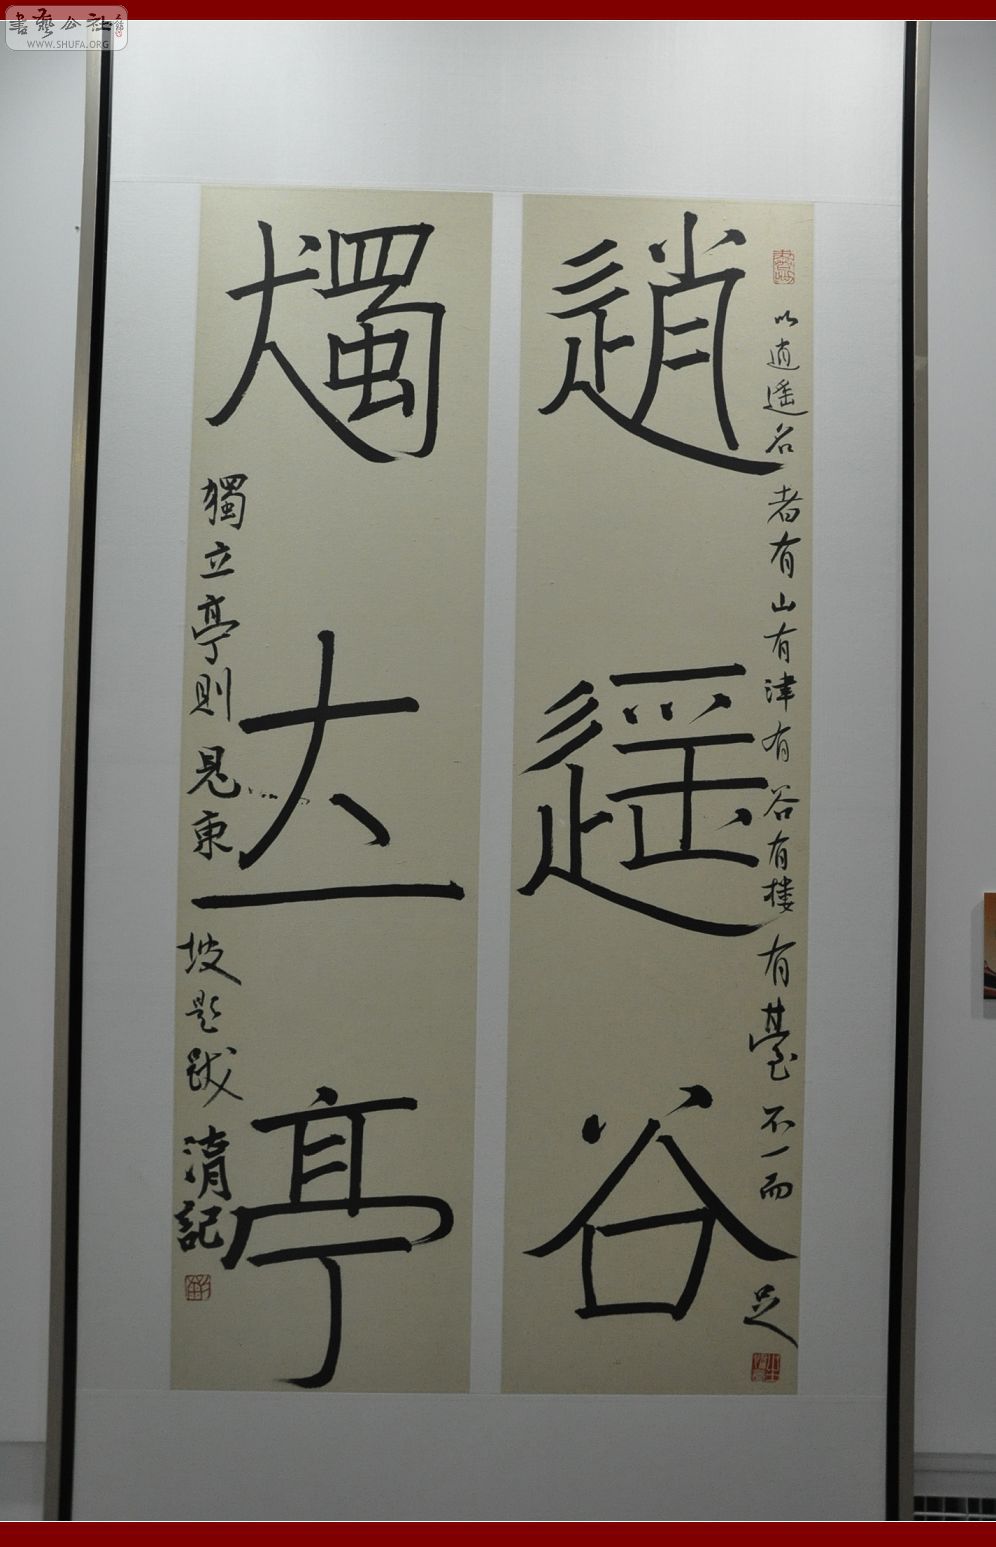 書藝公社
WWW.SHUFA.ORG
逍遥谷
以逍遥名者有山有津有谷有樓有臺不一而足
獨立亭
獨立亭則見東坡題跋湇記